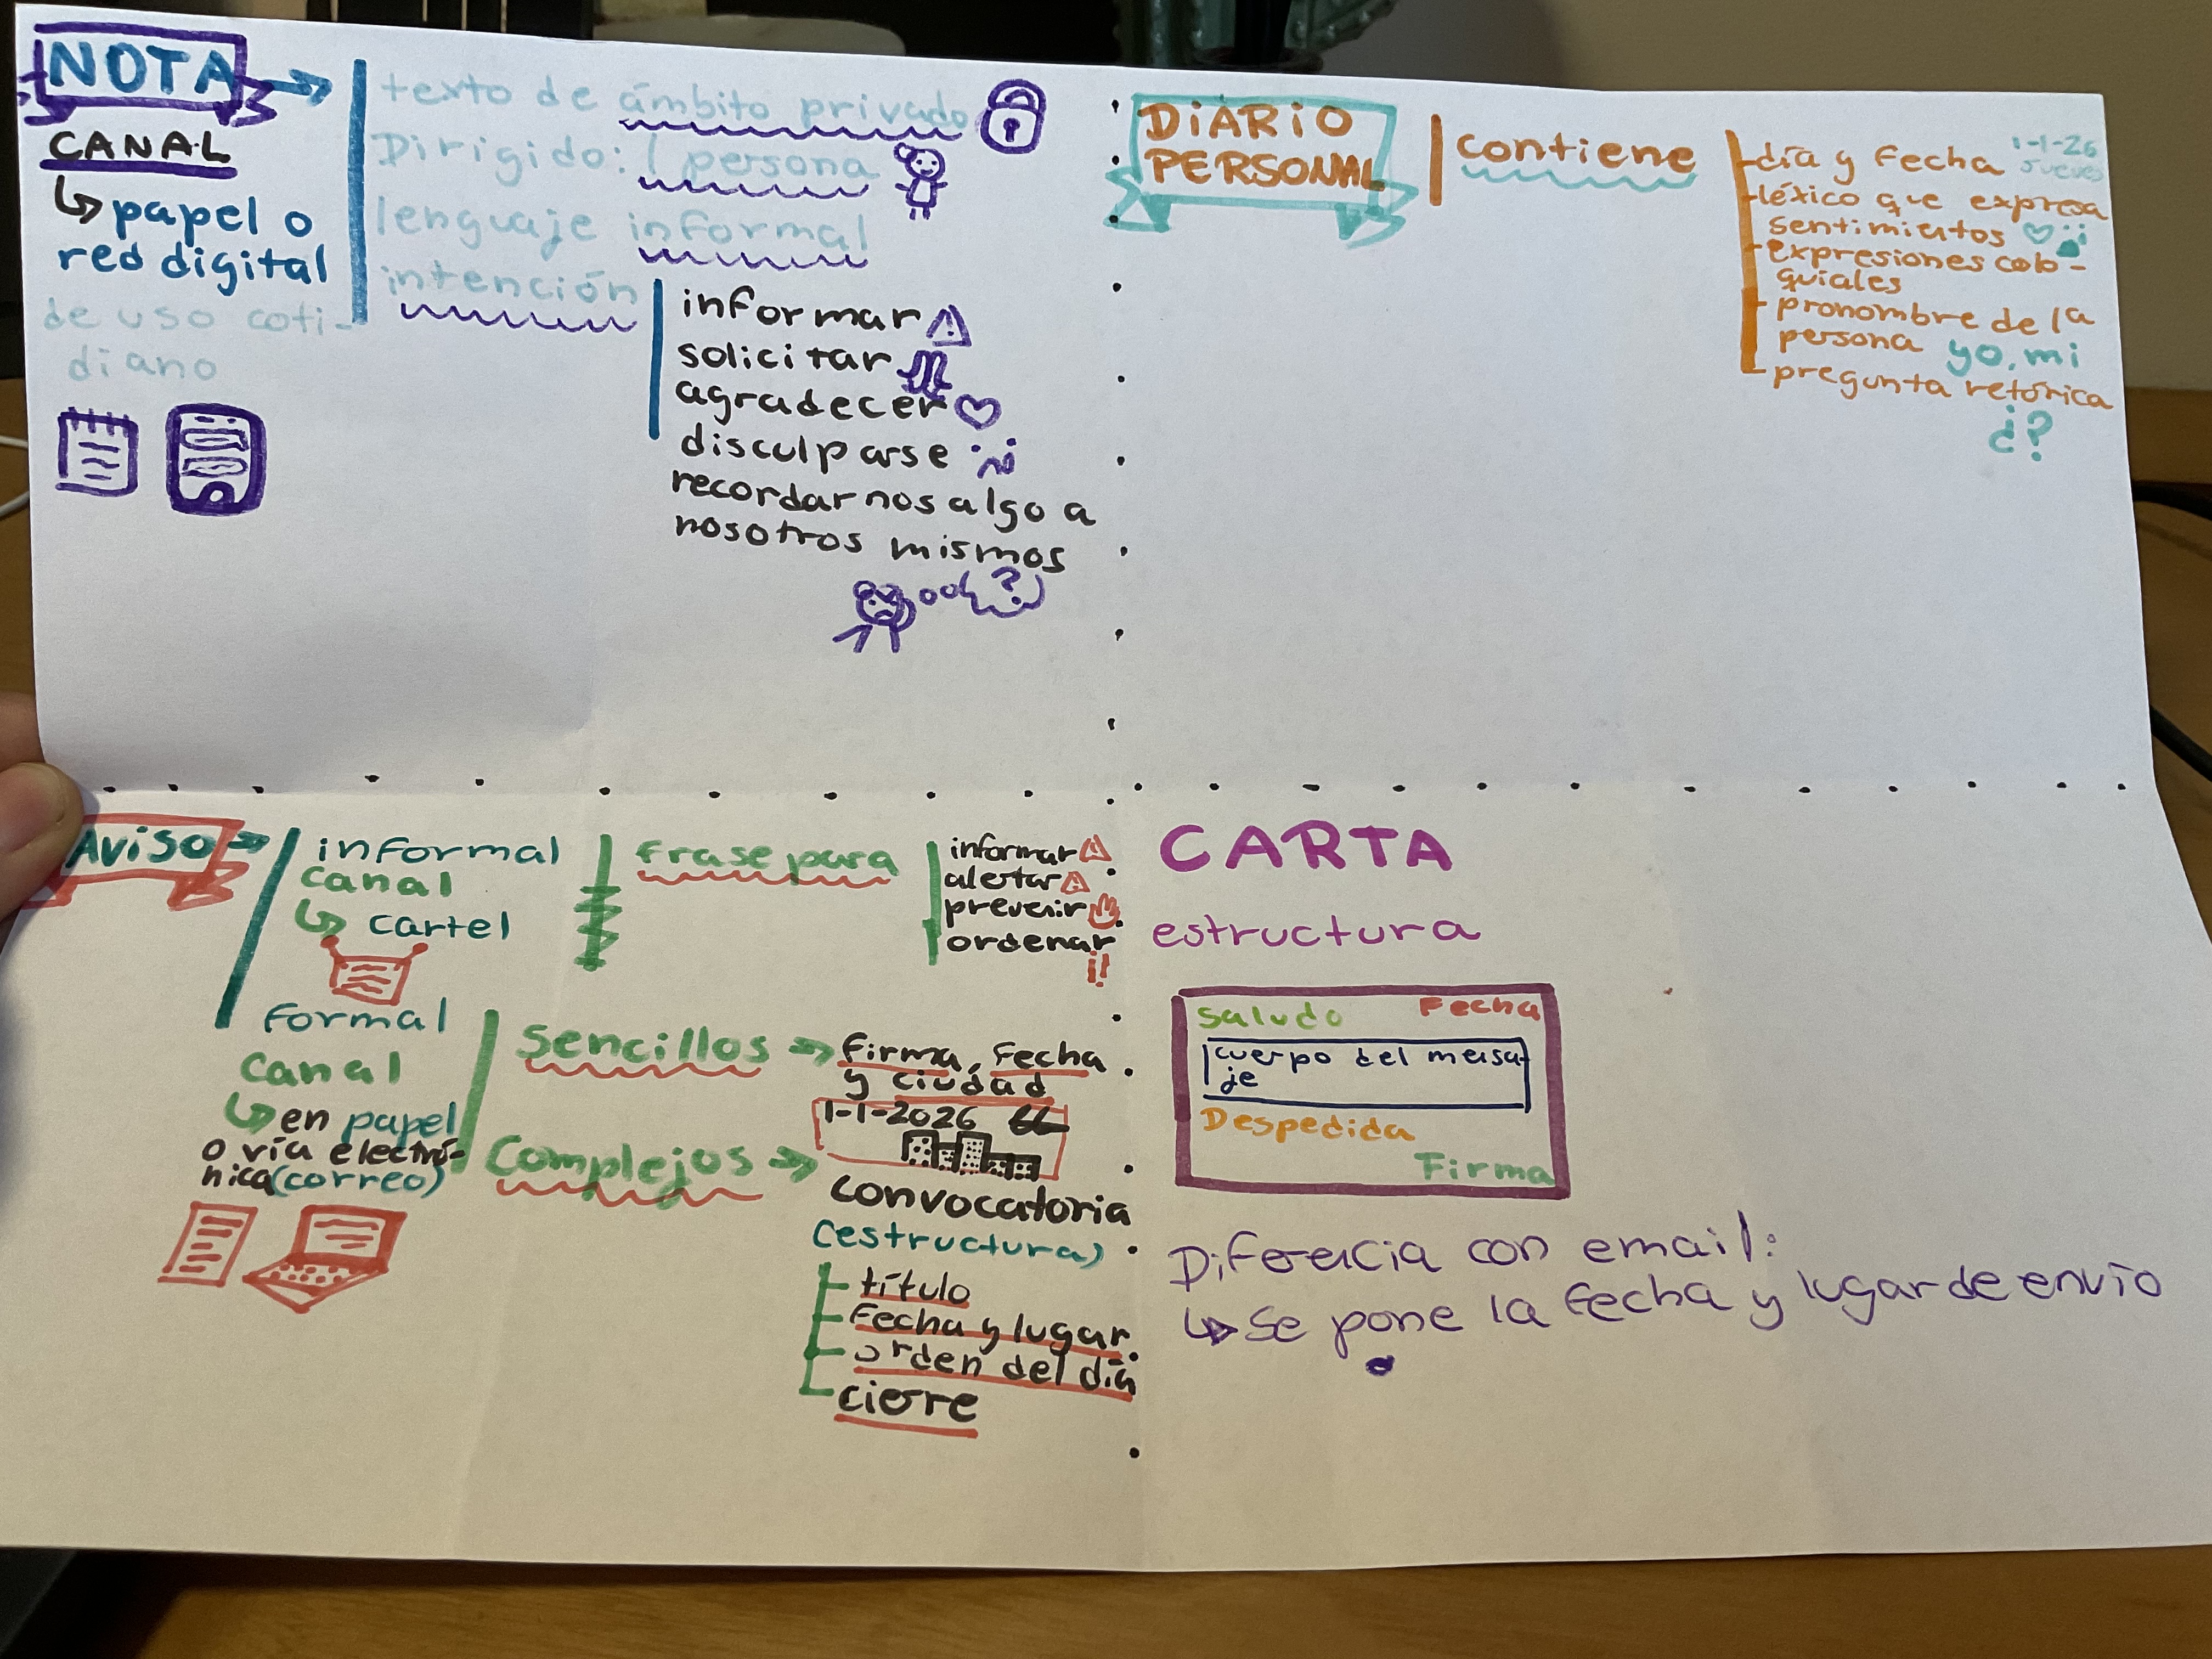 NOTA
CANAL
papel o
red digital
de uso coti-
diano
texto de ámbito privado
Dirigido: 1 persona
lenguaje informal
intención
informar
solicitar
agradecer
disculparse
recordarnos algo a
nosotros mismos
?
DIARIO
PERSONAL
contiene
día y fecha 1-1-26
jueves
léxico que expresa
sentimientos
expresiones colo-
quiales
pronombre de la
persona yo, mi
pregunta retórica
¿?
Aviso
informal
canal
cartel
frase para
informar
alertar
prevenir
ordenar
¡!
formal
canal
en papel
o vía electró-
nica (correo)
Sencillos
firma, fecha
y ciudad
1-1-2026
Complejos
convocatoria
(estructura)
título
Fecha y lugar
orden del día
cierre
CARTA
estructura
saludo Fecha
cuerpo del mensa-
je
Despedida
Firma
Diferencia con email:
Se pone la fecha y lugar de envío